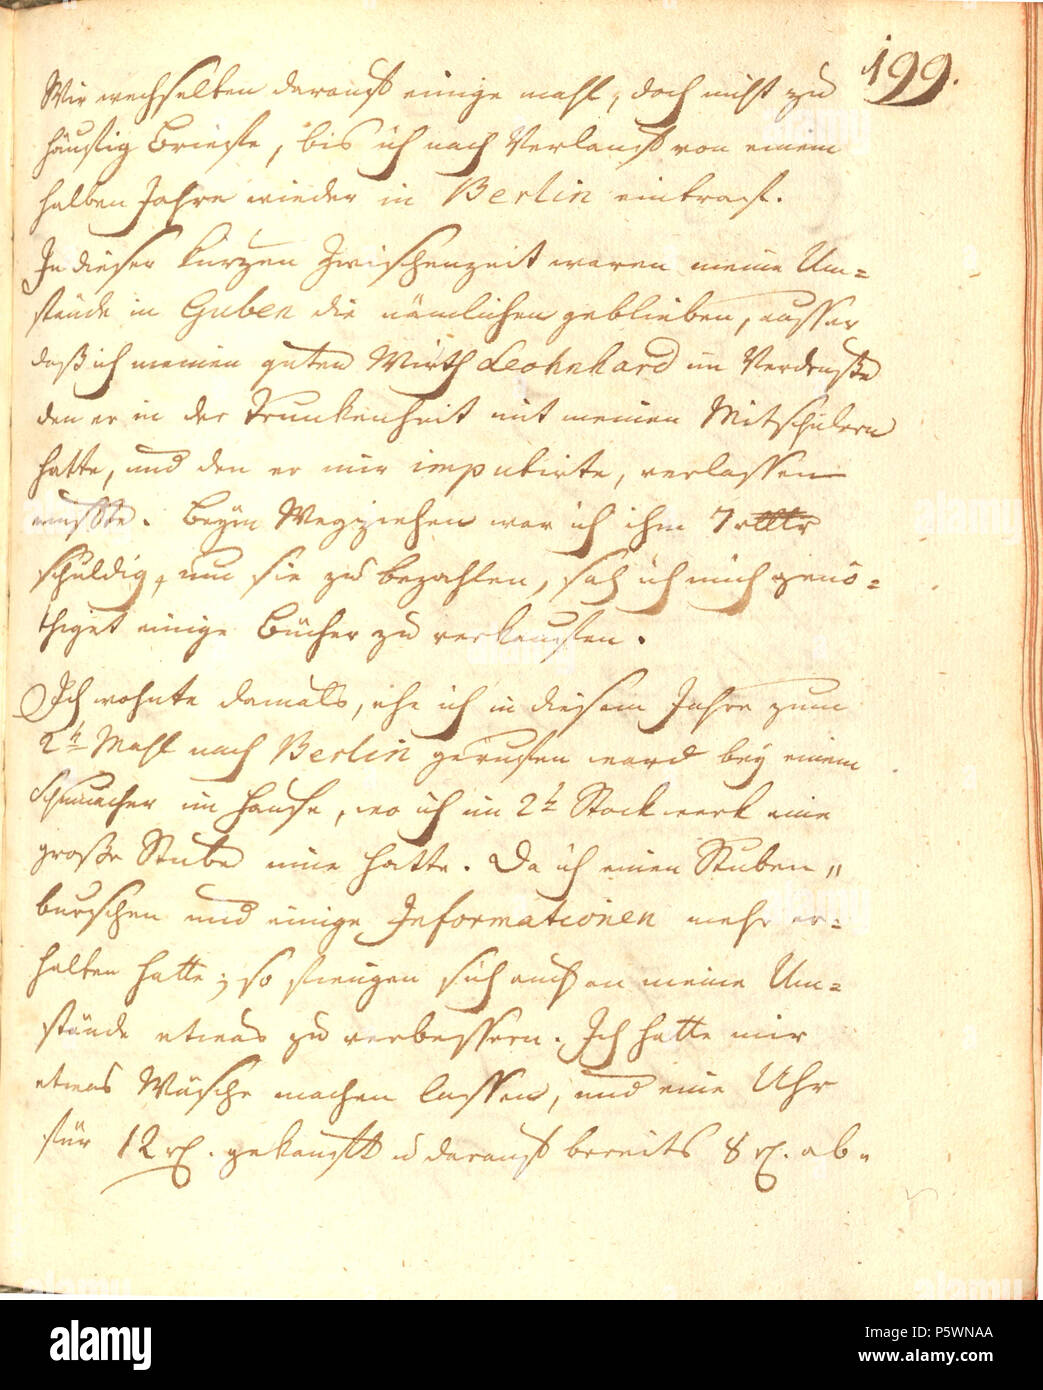 199.
Wir wechselten darauf einige mahl, doch nicht zu
häufig Briefe, bis ich nach Verlauf von einem
halben Jahre wieder in Berlin eintraf.
In dieser kurzen Zwischenzeit waren meine Um=
stände in Guben die nämlichen geblieben, ausser
daß ich meinen guten Wirth Leohnhard im Verdruße
den er in der Trunkenheit mit meinen Mitschülern
hatte, und den er mir imputirte, verlassen
musste. Beym Wegziehen war ich ihm 7 rthlr
schuldig, um sie zu bezahlen, sah ich mich genö=
thiget einige Bücher zu verkaufen.
Ich wohnte damals, ehe ich in diesem Jahre zum
2n Mahl nach Berlin gerufen ward bey einem
Schumacher im Hause, wo ich im 2n Stockwerk eine
große Stube inne hatte. Da ich einen Stuben„
burschen und einige Informationen mehr er=
halten hatte; so fiengen sich auch an meine Um=
stände etwas zu verbessern. Ich hatte mir
etwas Wäsche machen lassen, und eine Uhr
für 12 rl. gekauft u darauf bereits 8 rl. ab=
alamy
Image ID: P5WNAA
www.alamy.com